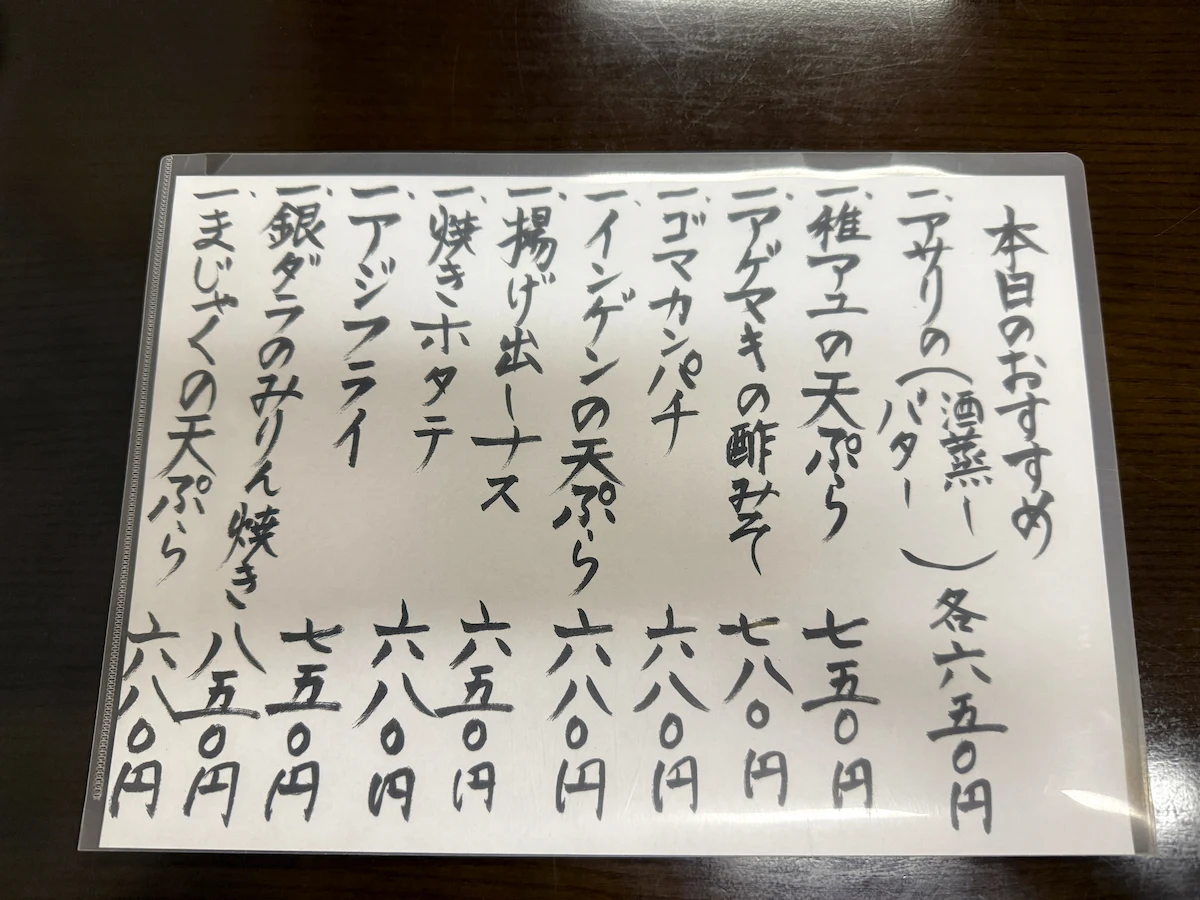 本日のおすすめ
一、アサリの(酒蒸し
バター) 各六五〇円
一、稚アユの天ぷら 七五〇円
一、アゲマキの酢みそ 七八〇円
一、ゴマカンパチ 六八〇円
一、インゲンの天ぷら 六八〇円
一、揚げ出しナス 六五〇円
一、焼きホタテ 六八〇円
一、アジフライ 七五〇円
一、銀ダラのみりん焼き 八五〇円
一、まじゃくの天ぷら 六八〇円